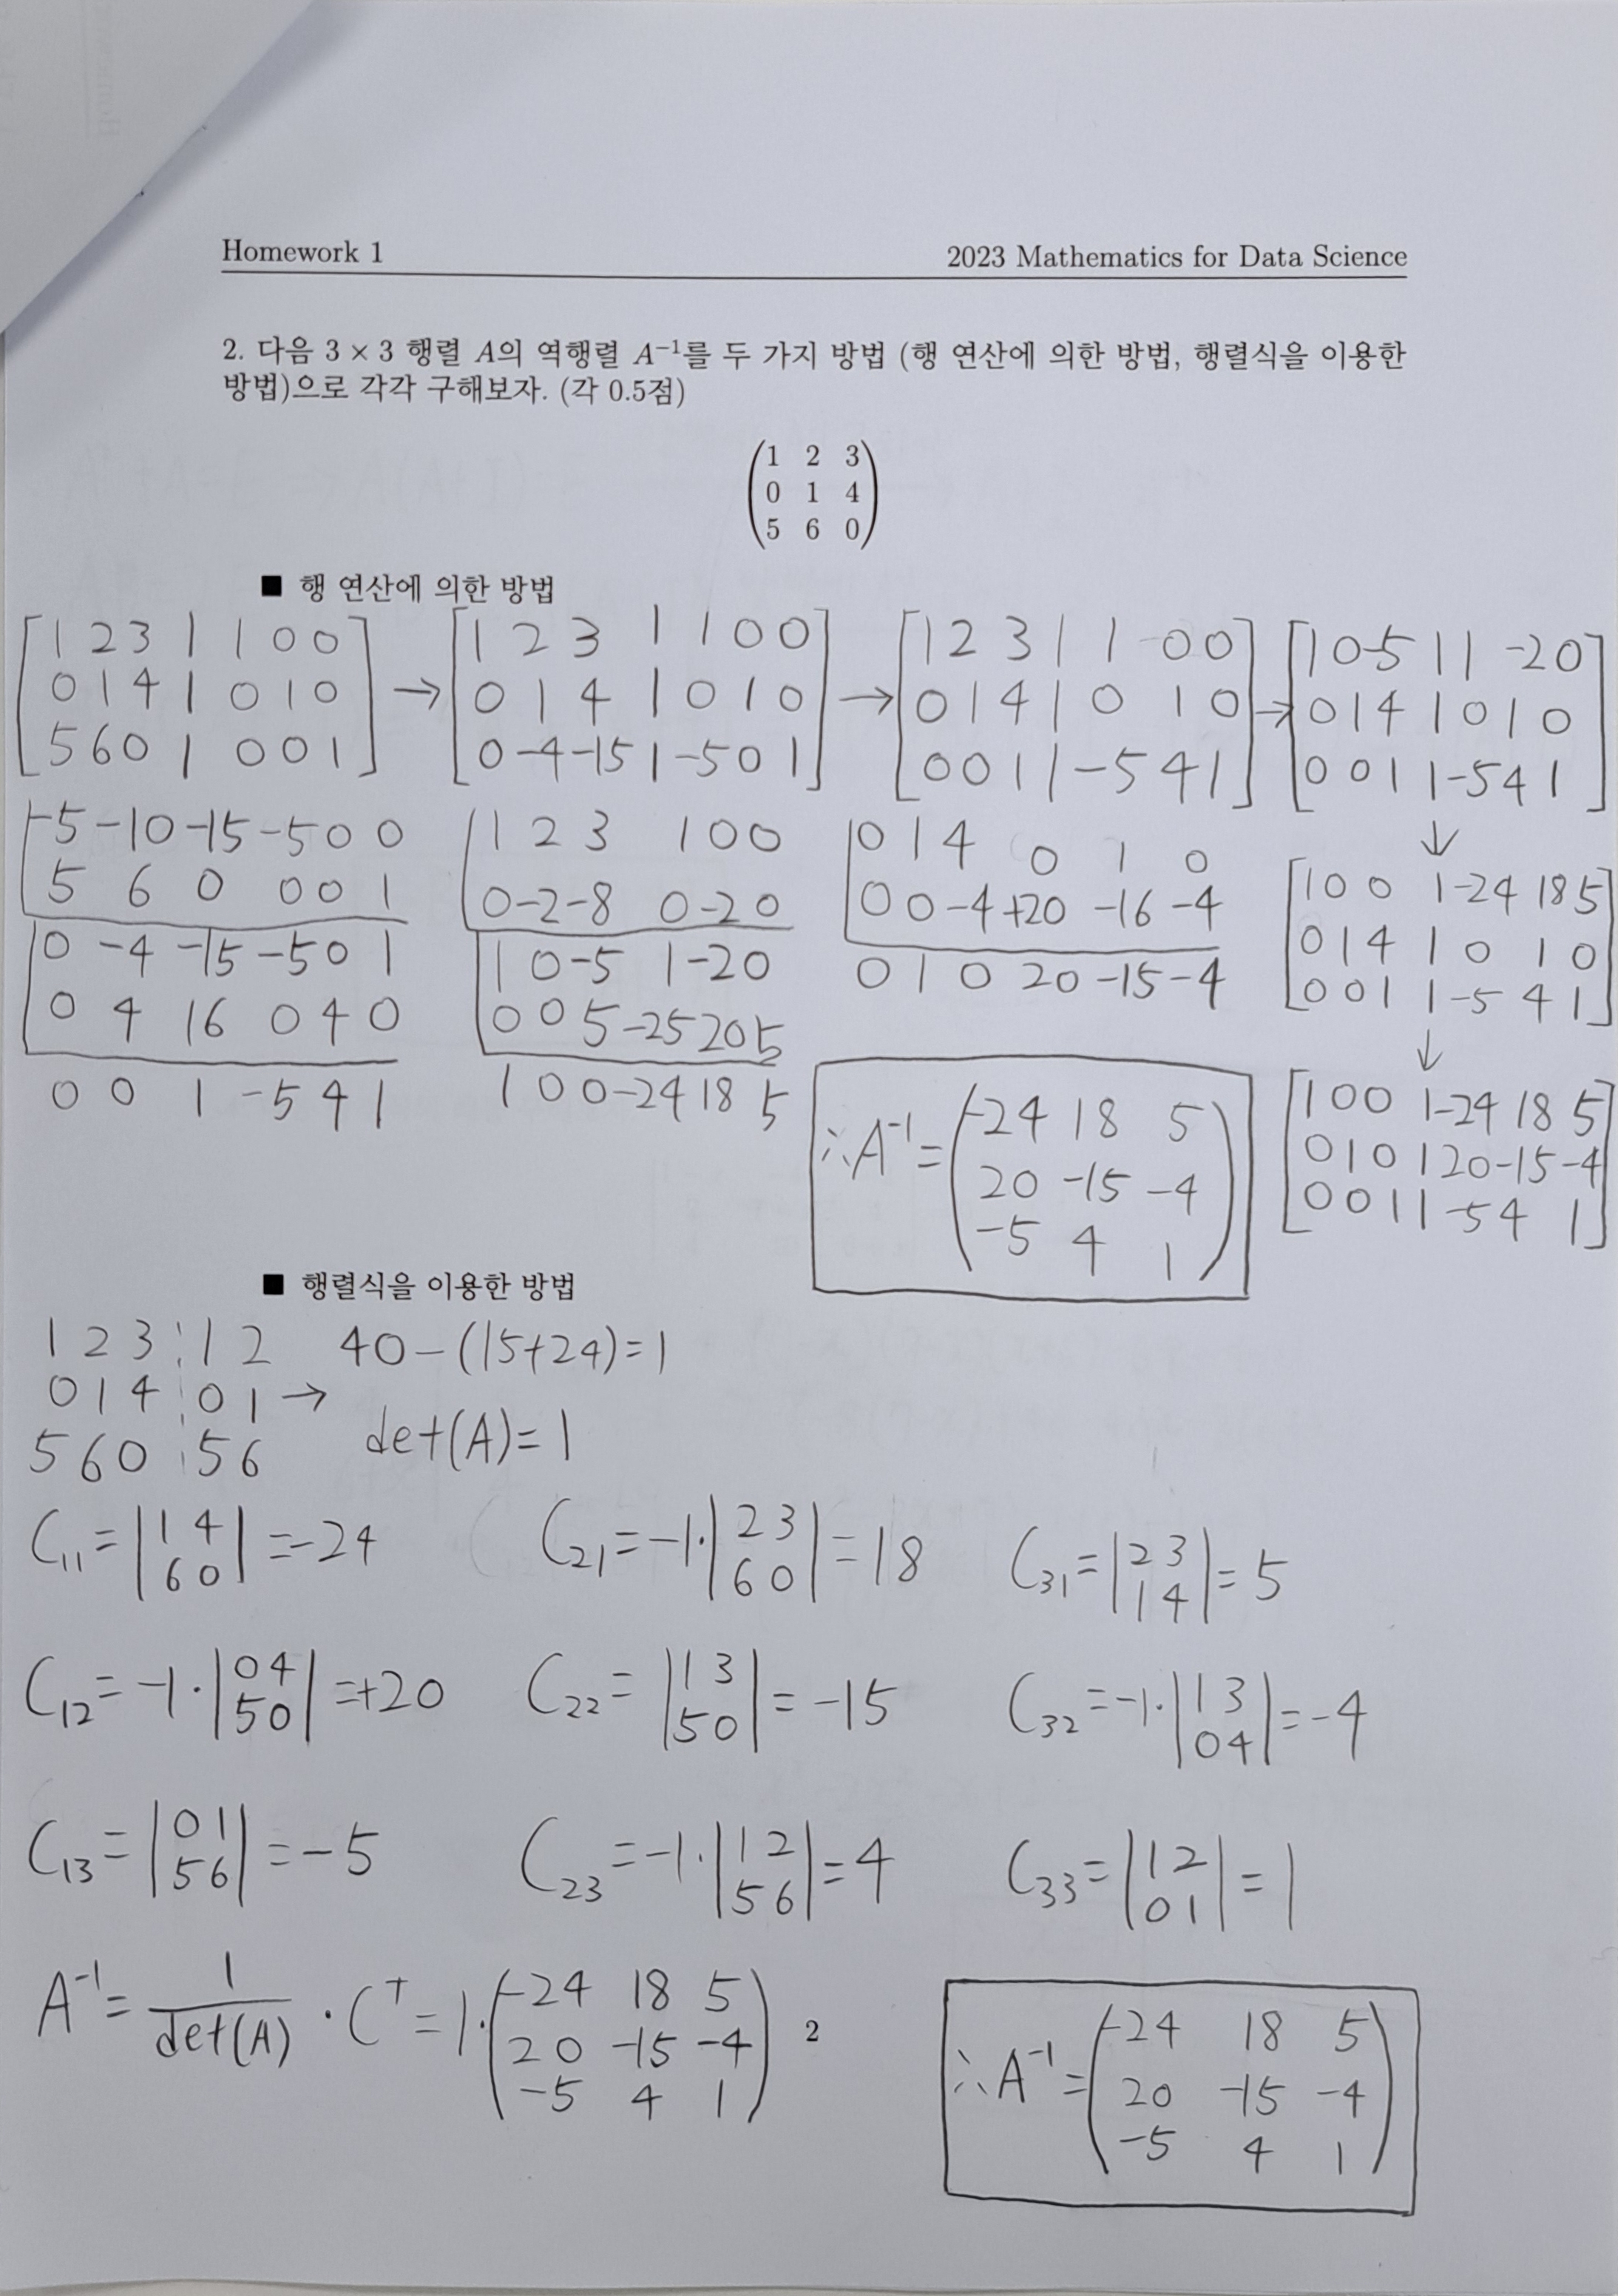 Homework 1 2023 Mathematics for Data Science
2. 다음 3 × 3 행렬 A의 역행렬 A⁻¹를 두 가지 방법 (행 연산에 의한 방법, 행렬식을 이용한
방법)으로 각각 구해보자. (각 0.5점)
1 2 3
0 1 4
5 6 0
■ 행 연산에 의한 방법
[1 2 3 | 1 0 0
0 1 4 | 0 1 0
5 6 0 | 0 0 1]
→ [1 2 3 | 1 0 0
0 1 4 | 0 1 0
0 -4 -15 | -5 0 1]
→ [1 2 3 | 1 0 0
0 1 4 | 0 1 0
0 0 1 | -5 4 1]
→ [1 0 -5 | 1 -2 0
0 1 4 | 0 1 0
0 0 1 | -5 4 1]
↓
[1 0 0 | -24 18 5
0 1 4 | 0 1 0
0 0 1 | -5 4 1]
↓
[1 0 0 | -24 18 5
0 1 0 | 20 -15 -4
0 0 1 | -5 4 1]
-5 -10 -15 -5 0 0
5 6 0 0 0 1
0 -4 -15 -5 0 1
0 4 16 0 4 0
0 0 1 -5 4 1
1 2 3 1 0 0
0 -2 -8 0 -2 0
1 0 -5 1 -2 0
0 0 5 -25 20 5
1 0 0 -24 18 5
0 1 4 0 1 0
0 0 -4 +20 -16 -4
0 1 0 20 -15 -4
∴ A⁻¹ = (-24 18 5
20 -15 -4
-5 4 1)
■ 행렬식을 이용한 방법
1 2 3 ¦ 1 2 40 - (15+24) = 1
0 1 4 ¦ 0 1 →
5 6 0 ¦ 5 6 det(A) = 1
C₁₁ = |1 4
6 0| = -24
C₂₁ = -1·|2 3
6 0| = 18
C₃₁ = |2 3
1 4| = 5
C₁₂ = -1·|0 4
5 0| = +20
C₂₂ = |1 3
5 0| = -15
C₃₂ = -1·|1 3
0 4| = -4
C₁₃ = |0 1
5 6| = -5
C₂₃ = -1·|1 2
5 6| = 4
C₃₃ = |1 2
0 1| = 1
A⁻¹ = 1/det(A) · Cᵀ = 1·(-24 18 5
20 -15 -4
-5 4 1)
2
∴ A⁻¹ = (-24 18 5
20 -15 -4
-5 4 1)